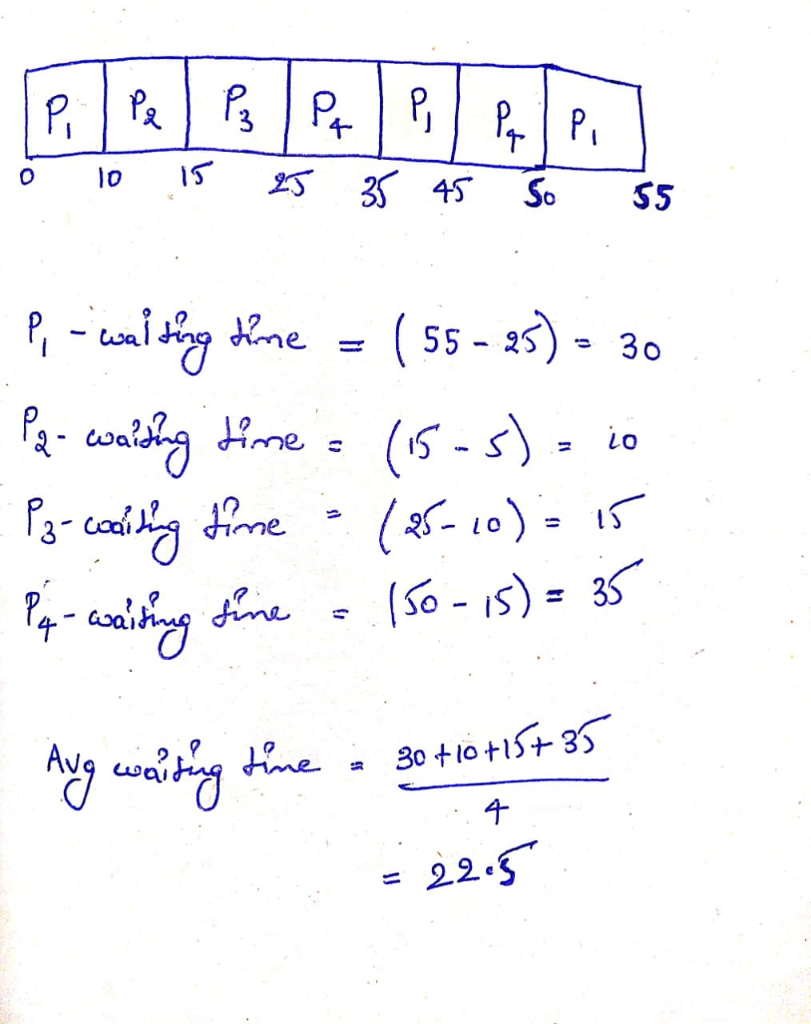 P₁ P₂ P₃ P₄ P₁ P₄ P₁
0 10 15 25 35 45 50 55
P₁ - waiting time = (55 - 25) = 30
P₂ - waiting time = (15 - 5) = 10
P₃ - waiting time = (25 - 10) = 15
P₄ - waiting time = (50 - 15) = 35
Avg waiting time = 30 + 10 + 15 + 35
4
= 22.5